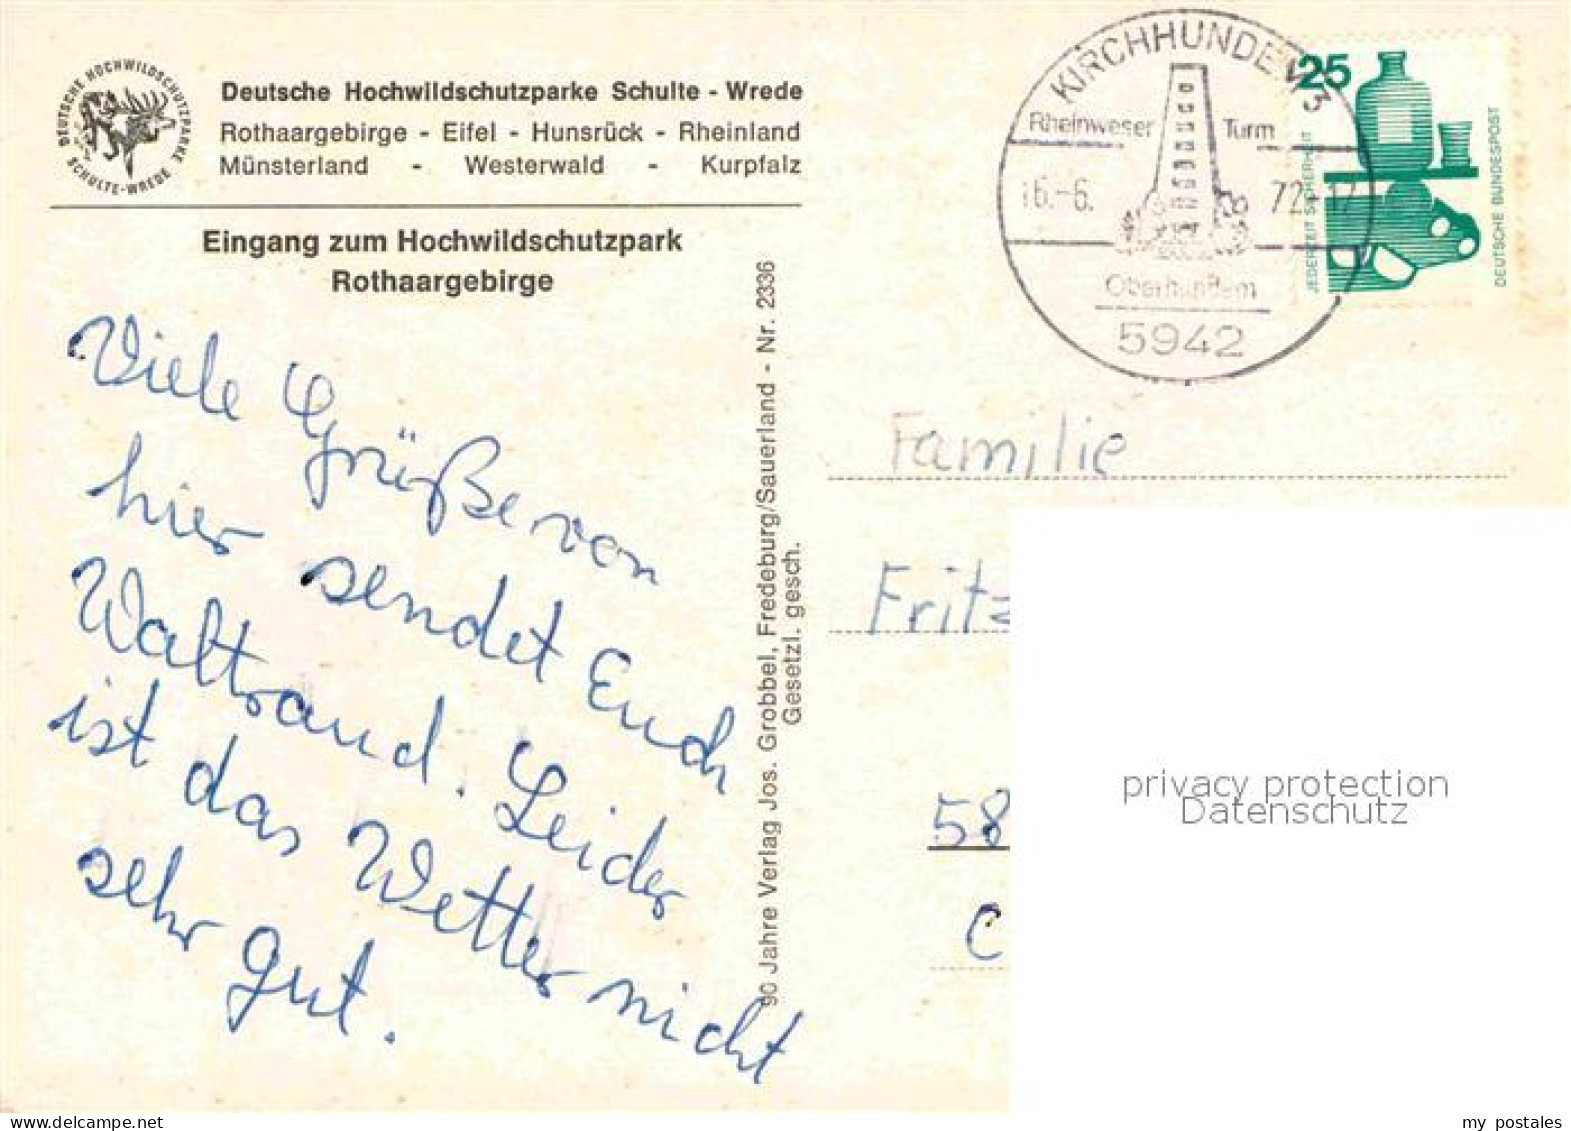 DEUTSCHE HOCHWILDSCHUTZPARKE
SCHULTE-WREDE
Deutsche Hochwildschutzparke Schulte - Wrede
Rothaargebirge - Eifel - Hunsrück - Rheinland
Münsterland - Westerwald - Kurpfalz
Eingang zum Hochwildschutzpark
Rothaargebirge
Viele Grüße von
hier sendet Euch
Waltraud. Leider
ist das Wetter nicht
sehr gut.
90 Jahre Verlag Jos. Grobbel, Fredeburg/Sauerland - Nr. 2336
Gesetzl. gesch.
KIRCHHUNDEM 3
Rheinweser Turm
16.-6. 72.-17
Oberhundem
5942
25
JEDERZEIT SICHERHEIT
DEUTSCHE BUNDESPOST
Familie
Fritz
58
C
privacy protection
Datenschutz
www.delcampe.net
my_postales